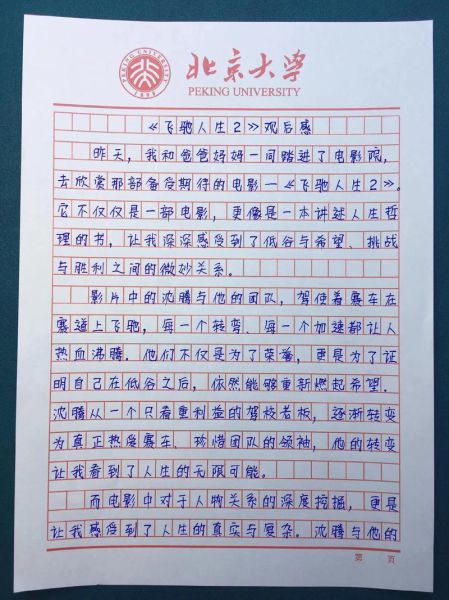 PEKING UNIVERSITY
1898
北京大学
PEKING UNIVERSITY
《飞驰人生2》观后感
昨天，我和爸爸妈妈一同踏进了电影院，
去欣赏那部备受期待的电影—《飞驰人生2》。
它不仅仅是一部电影，更像是一本讲述人生哲
理的书，让我深深感受到了低谷与希望、挑战
与胜利之间的微妙关系。
影片中的沈腾与他的团队，驾驶着赛车在
赛道上飞驰，每一个转弯、每一个加速都让人
热血沸腾。他们不仅是为了荣誉，更是为了证
明自己在低谷之后，依然能够重新燃起希望。
沈腾从一个只看重利益的驾校老板，逐渐转变
为真正热爱赛车、珍惜团队的领袖，他的转变
让我看到了人生的无限可能。
而电影中对于人物关系的深度挖掘，更是
让我感受到了人生的真实与复杂。沈腾与他的
第 页